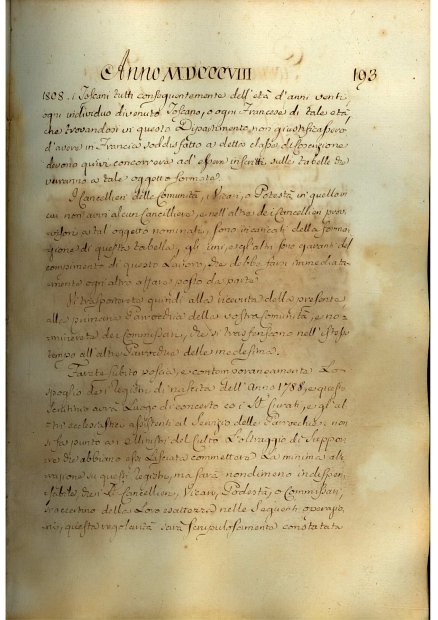 Anno MDCCCVIII 193
1808. i Toscani tutti conseguentemente dell'età d'anni venti,
ogni individuo divenuto Toscano, o ogni Francese di tale età
che trovandosi in questo Dipartimento non giustificasse
d'avere in Francia soddisfatto a detta classe
devono quivi concorrere ad' esser inscritti sulle tabelle che
verranno a tale oggetto formate.
I Cancellieri delle Comunità, i Vicari, o Potestà in quelle in
cui non avvi alcun Cancelliere, e nell'altre dei Cancellieri prov-
visori a tal oggetto nominati, sono incaricati della forma-
zione di questa tabella, gli uni, e gl'altri sono garanti del
compimento di questo Lavoro, che debbe farsi immediata-
mente ogni altro affare posto da parte
Si trasporterete quindi alla ricevuta della presente
alla primaria Parrocchia della vostra Comunità, e no-
minerete dei Commissari, che si trasferiscono nell'istesso
tempo all'altre Parrocchie della medesima.
Farete subito possia, e contemporaneamente Lo
spoglio dei Registri di nascita dell'Anno 1788, e questa
avrà Luogo di concerto co i SS. Curati, e gl'al-
tri ecclesiastici assistenti al Servizio delle Parrocchie; non
si fa punto ai Ministri del Culto L'oltraggio di suppor-
re che abbiano essi Lasciata commettere La minima alt-
razione su questi Registri, ma sarà nondimeno indispen-
sabile che i SS. Cancellieri, Vicari, Podestà, o Commissari,
s'accertino della Loro esattezza nelle seguenti operazio-
ni, questa regolarità sarà scrupolosamente constatata